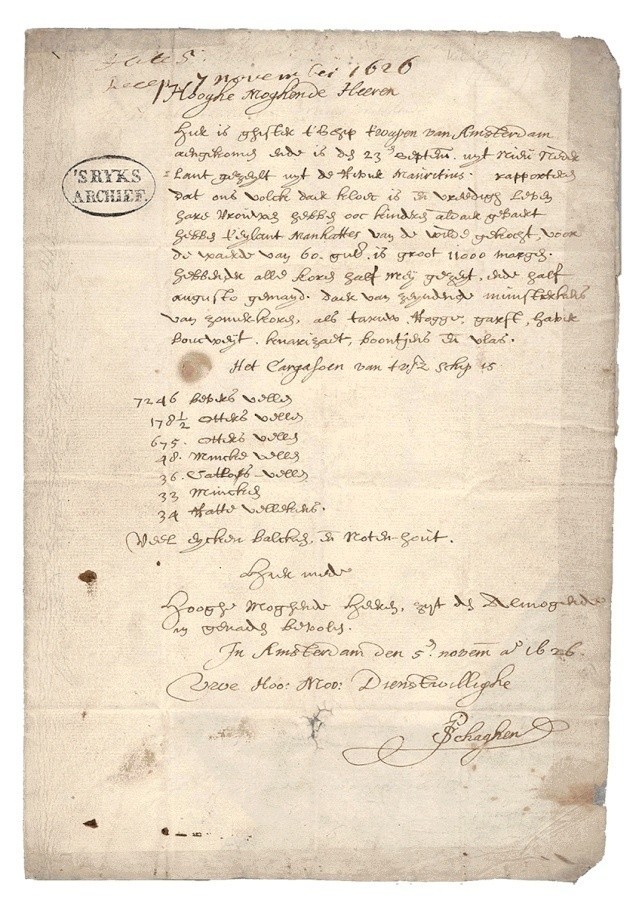 Recep 7 november 1626
Hooghe Moghende Heeren
Hier is ghister t'Schip t'wapen van Amsterdam
aengekomen ende is den 23en septem: uyt Nieu Neder
lant gezeylt uyt de Rivier Mauritius. rapporteren
dat ons volck daer kloec is en vreedigh leven
hare Vrouwen hebben ooc kinderen aldaer gebaert
hebben t'eylant Manhattes van de wilde gekocht, voor
de waerde van 60. gul: is groot 11000 margen.
hebbende alle koren half Mey gezeyt, ende half
augusto gemayd. daer van zeyndende munsterkens
van zomerkoren, als taruw, Rogge, garst, haver
boucweyt, knarizaet, boontjens en vlas.
Het Cargasoen van tvsz schip is
7246 bevers vellen
178½ otters vellen
675. otters vellen
48. Mincke vellen
36. Catlofs vellen
33 Mincken
34 Ratte vellekens.
Veel eycken balcken, en Noten hout.
Hier mede
Hooghe Moghende Heeren, zyt den Almogende
in genaden bevolen.
In Amsterdam den 5en novem ao 1626.
Uwe Hoo: Moo: Dienstwillighe
P Schaghen
'S RYKS
ARCHIEF.